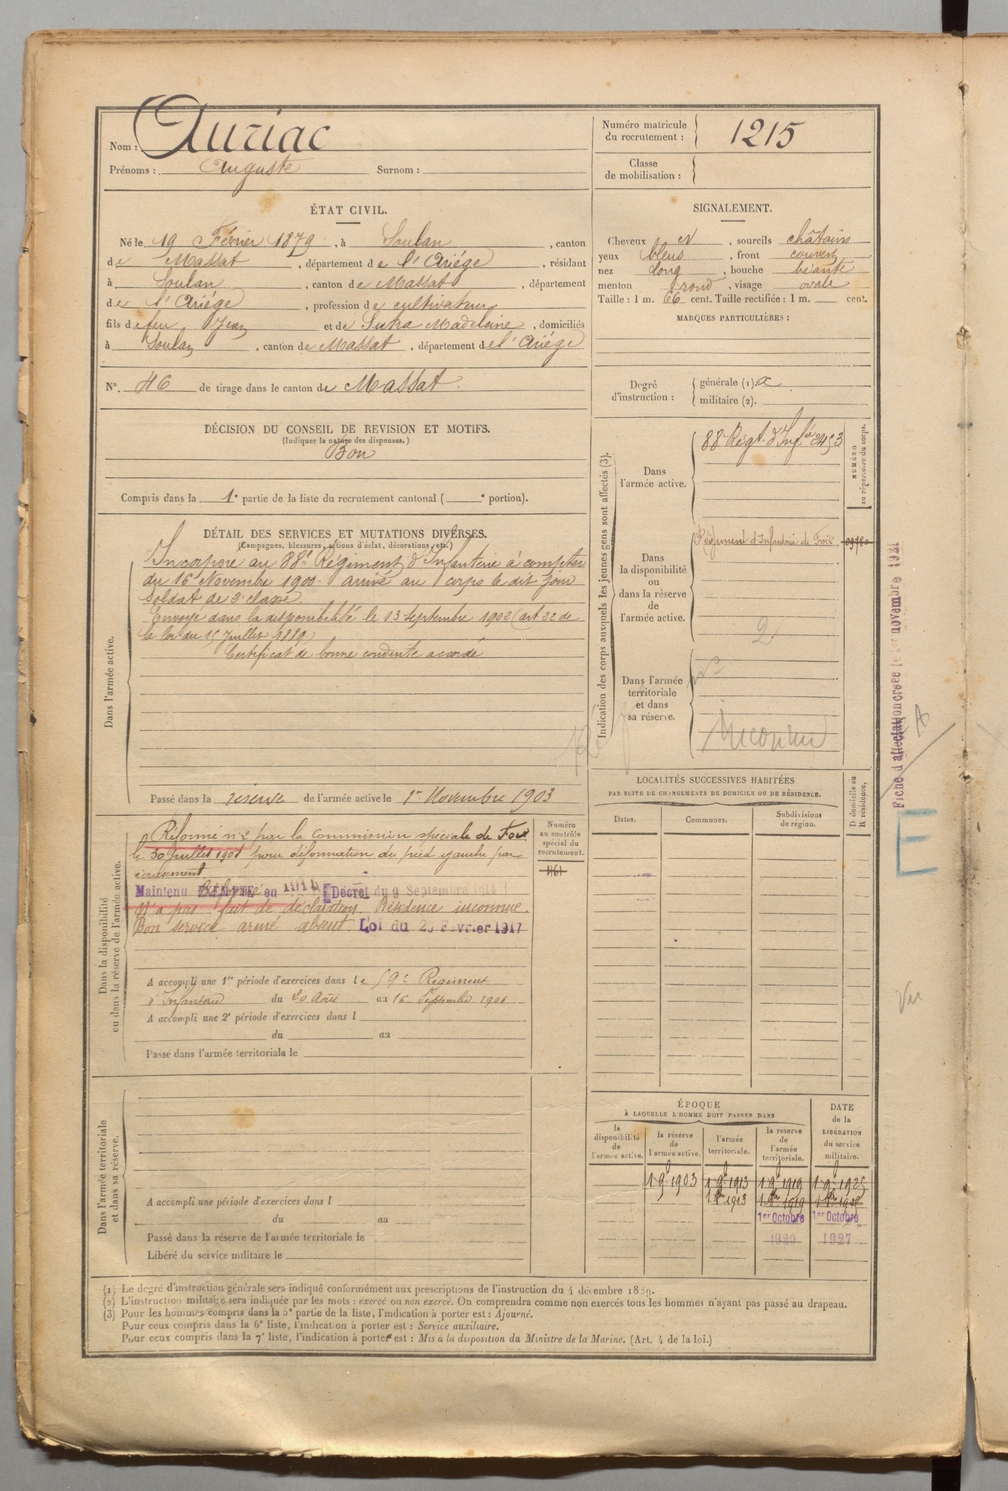 Nom : Auriac
Prénoms : Auguste Surnom :
Numéro matricule du recrutement : 1215
Classe de mobilisation :
ÉTAT CIVIL.
Né le 19 Février 1879, à Soulan, canton
de Massat, département de l'Ariége, résidant
à Soulan, canton de Massat, département
de l'Ariége, profession de cultivateur
fils de feu Jean et de Sutra Madeleine, domiciliés
à Soulan, canton de Massat, département de l'Ariége
N° 46 de tirage dans le canton de Massat
SIGNALEMENT.
Cheveux et, sourcils châtains
yeux bleus, front couvert
nez long, bouche béante
menton rond, visage ovale
Taille : 1 m. 66 cent. Taille rectifiée : 1 m. cent.
MARQUES PARTICULIÈRES :
Degré d'instruction : générale (1). 2
militaire (2).
DÉCISION DU CONSEIL DE REVISION ET MOTIFS.
(Indiquer la nature des dispenses.)
Bon
Compris dans la 1e partie de la liste du recrutement cantonal ( e portion).
DÉTAIL DES SERVICES ET MUTATIONS DIVERSES.
(Campagnes, blessures, actions d'éclat, décorations, etc.)
Dans l'armée active.
Incorporé au 88e Régiment d'Infanterie à compter
du 16 Novembre 1900. arrivé au corps le dit jour
Soldat de 2e classe.
Envoyé dans la disponibilité le 13 Septembre 1902 (art 22 de
la loi du 15 Juillet 1889)
Certificat de bonne conduite accordé
Passé dans la réserve de l'armée active le 1er Novembre 1903
Indication des corps auxquels les jeunes gens sont affectés (3).
NUMÉRO au répertoire du corps.
Dans l'armée active.
88 Régt. d'Infie
Dans la disponibilité ou dans la réserve de l'armée active.
Régiment d'Infanterie de Foix
2
Dans l'armée territoriale et dans sa réserve.
Inconnu
Fiche d'affectation créée le novembre 1921
A
E
Vu
Dans la disponibilité ou dans la réserve de l'armée active.
Réformé n°2 par la Commission spéciale de Foix
le 30 juillet 1908 pour déformation du pied gauche par
écrasement.
Maintenu Réformé en 1914 Décret du 9 Septembre 1914
N'a pas fait de déclaration. Résidence inconnue.
Bon service armé absent Loi du 20 Février 1917
Numéro au contrôle spécial du recrutement.
1161
A accompli une 1re période d'exercices dans le 59e Régiment
d'Infanterie du 20 Août au 16 Septembre 1906
A accompli une 2e période d'exercices dans l
du au
Passé dans l'armée territoriale le
LOCALITÉS SUCCESSIVES HABITÉES
PAR SUITE DE CHANGEMENTS DE DOMICILE OU DE RÉSIDENCE.
Dates. Communes. Subdivisions de région. D domicile ou R résidence.
Dans l'armée territoriale et dans sa réserve.
A accompli une période d'exercices dans l
du au
Passé dans la réserve de l'armée territoriale le
Libéré du service militaire le
ÉPOQUE
À LAQUELLE L'HOMME DOIT PASSER DANS
la disponibilité de l'armée active. la réserve de l'armée active. l'armée territoriale. la réserve de l'armée territoriale.
DATE de la LIBÉRATION du service militaire.
1 9bre 1903 1 9bre 1913 1 9bre 1919 1 9bre 1925
1er Octobre 1er Octobre
1920 1927
(1) Le degré d'instruction générale sera indiqué conformément aux prescriptions de l'instruction du 4 décembre 1889.
(2) L'instruction militaire sera indiquée par les mots : exercé ou non exercé. On comprendra comme non exercés tous les hommes n'ayant pas passé au drapeau.
(3) Pour les hommes compris dans la 5e partie de la liste, l'indication à porter est : Ajourné.
Pour ceux compris dans la 6e liste, l'indication à porter est : Service auxiliaire.
Pour ceux compris dans la 7e liste, l'indication à porter est : Mis à la disposition du Ministre de la Marine. (Art. 4 de la loi.)